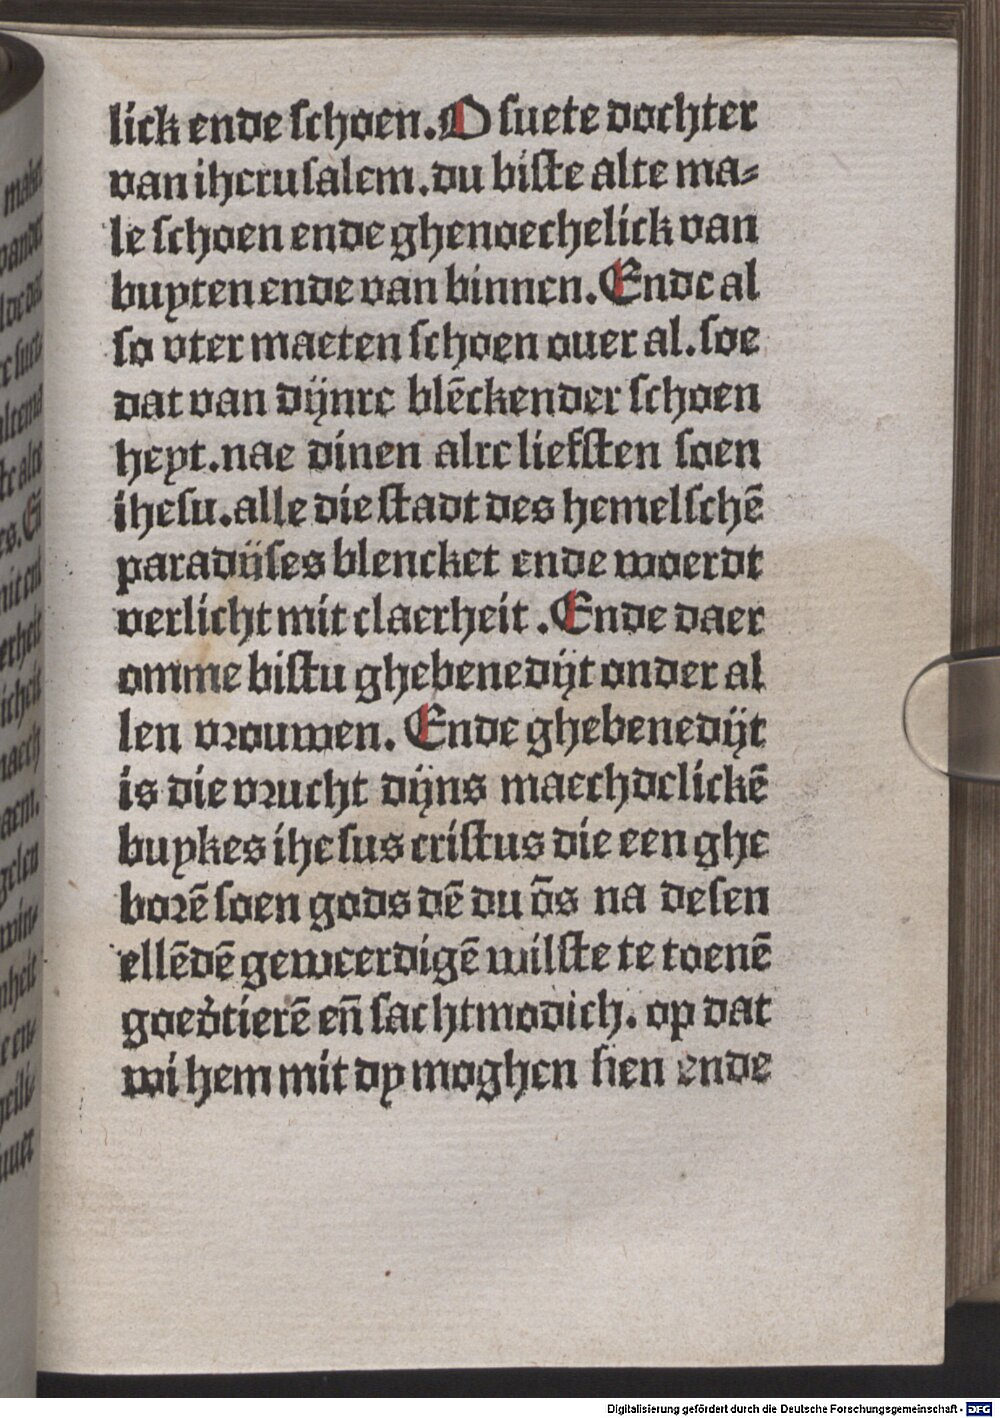 lick ende schoen. O suete dochter
van iherusalem. du biste alte ma⸗
le schoen ende ghenoechelick van
buyten ende van binnen. Ende al
so vter maeten schoen ouer al. soe
dat van dijnre blēckender schoen
heyt. nae dinen alre liefsten soen
ihesu. alle die stadt des hemelschē
paradijses blencket ende woerdt
verlicht mit claerheit. Ende daer
omme bistu ghebenedijt onder al
len vrouwen. Ende ghebenedijt
is die vrucht dijns maechdelickē
buykes ihesus cristus die een ghe
borē soen gods dē du ōs na desen
ellēdē geweerdigē wilste te toenē
goed̕tierē en̄ sachtmodich. op dat
wi hem mit dy moghen sien ende
Digitalisierung gefördert durch die Deutsche Forschungsgemeinschaft - DFG